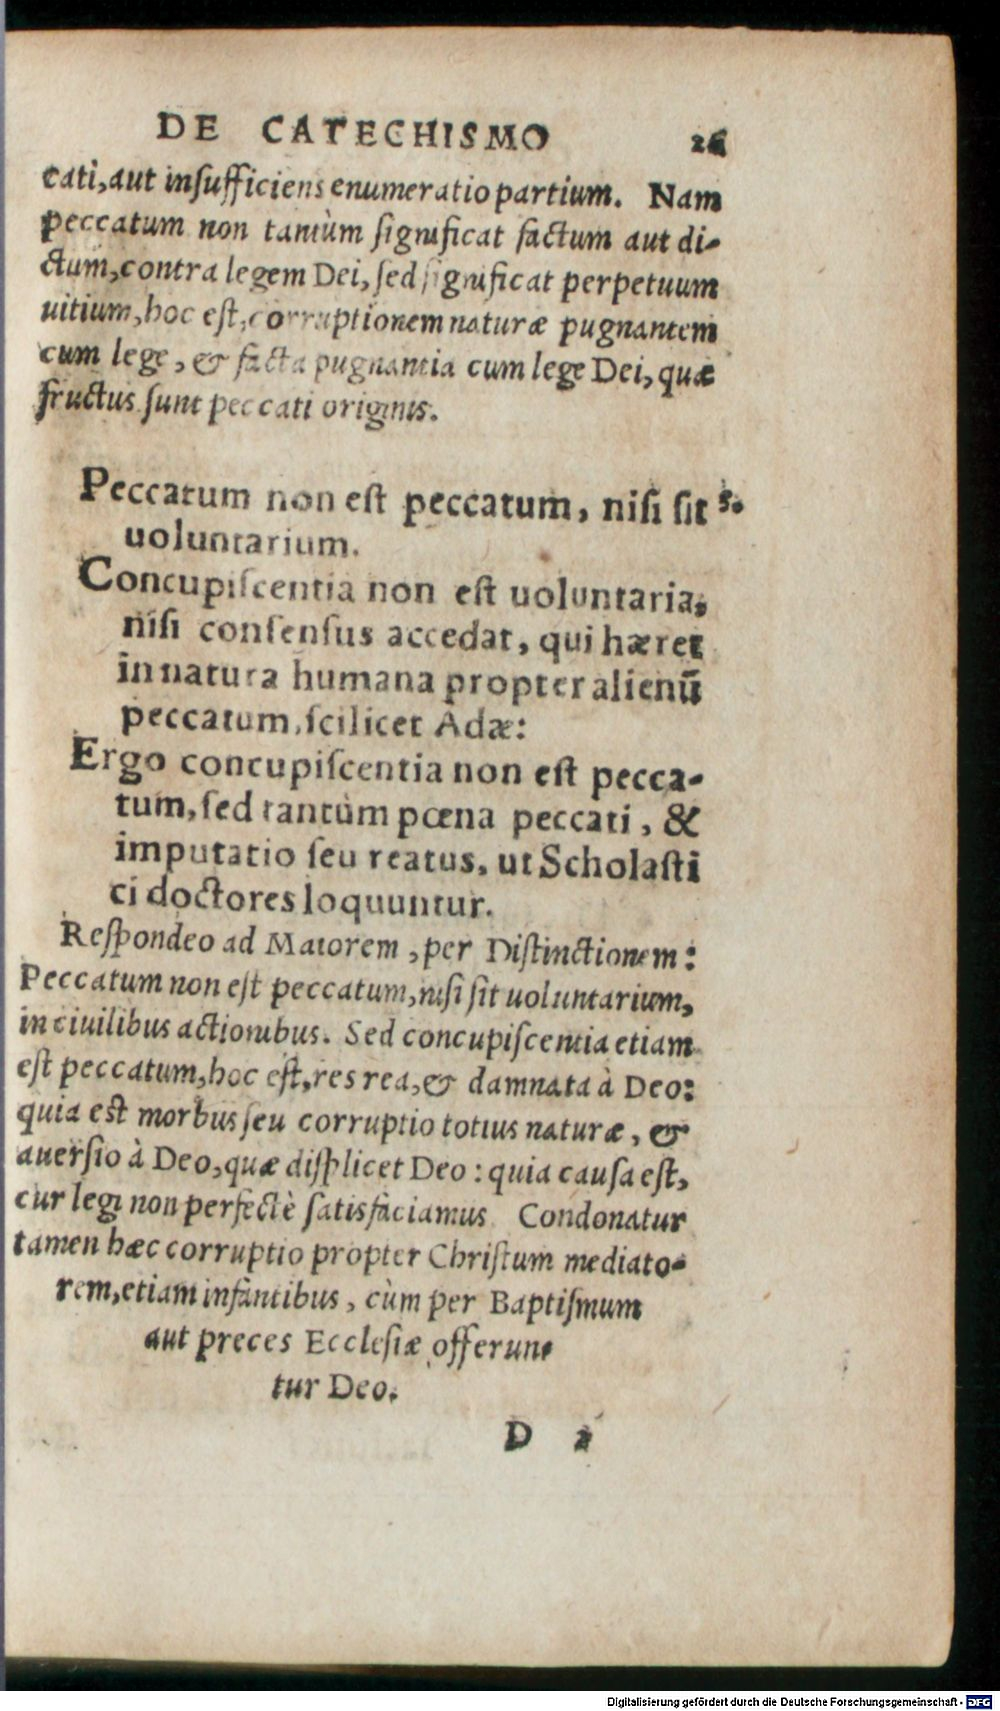 DE CATECHISMO 26
cati, aut insufficiens enumeratio partium. Nam
peccatum non tantùm significat factum aut di-
ctum, contra legem Dei, sed significat perpetuum
uitium, hoc est, corruptionem naturæ pugnantem
cum lege, & facta pugnantia cum lege Dei, quæ
fructus sunt peccati originis.
Peccatum non est peccatum, nisi sit 5.
uoluntarium.
Concupiscentia non est uoluntaria,
nisi consensus accedat, qui hæret
in natura humana propter alienū
peccatum, scilicet Adæ:
Ergo concupiscentia non est pecca-
tum, sed tantùm pœna peccati, &
imputatio seu reatus, ut Scholasti
ci doctores loquuntur.
Respondeo ad Maiorem, per Distinctionem:
Peccatum non est peccatum, nisi sit uoluntarium,
in ciuilibus actionibus. Sed concupiscentia etiam
est peccatum, hoc est, res rea, & damnata à Deo:
quia est morbus seu corruptio totius naturæ, &
auersio à Deo, quæ displicet Deo: quia causa est,
cur legi non perfectè satisfaciamus Condonatur
tamen hæc corruptio propter Christum mediato-
rem, etiam infantibus, cùm per Baptismum
aut preces Ecclesiæ offerun-
tur Deo.
D 2
Digitalisierung gefördert durch die Deutsche Forschungsgemeinschaft - DFG